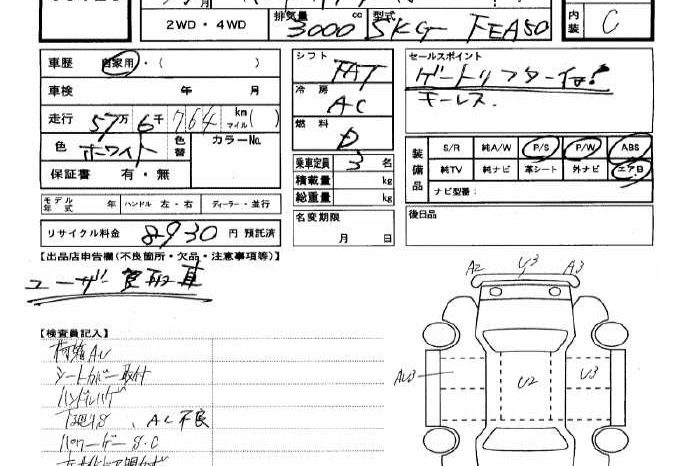 月
2WD・4WD 排気量 3000 cc 型式 SKG-FEA50
内装 C
車歴 自家用・( )
車検 年 月
走行 57万6千764 km マイル( )
色 ホワイト 色替 カラーNo.
保証書 有・無
モデル年式 年 ハンドル 左・右 ディーラー・並行
リサイクル料金 8930 円 預託済
シフト FAT
冷房 AC
燃料 D
乗車定員 3 名
積載量 kg
総重量 kg
名変期限
月 日
セールスポイント
ゲートリフター付!
キーレス.
装備品 S/R 純A/W P/S P/W ABS
純TV 純ナビ 革シート 外ナビ エアB
ナビ型番:
後日品
【出品店申告欄(不良箇所・欠品・注意事項等)】
ユーザー買取車
【検査員記入】
シートカバー取付
ハンドルハゲ
下廻りS、AC不良
A2 U3 A3
AU3 U2 U3